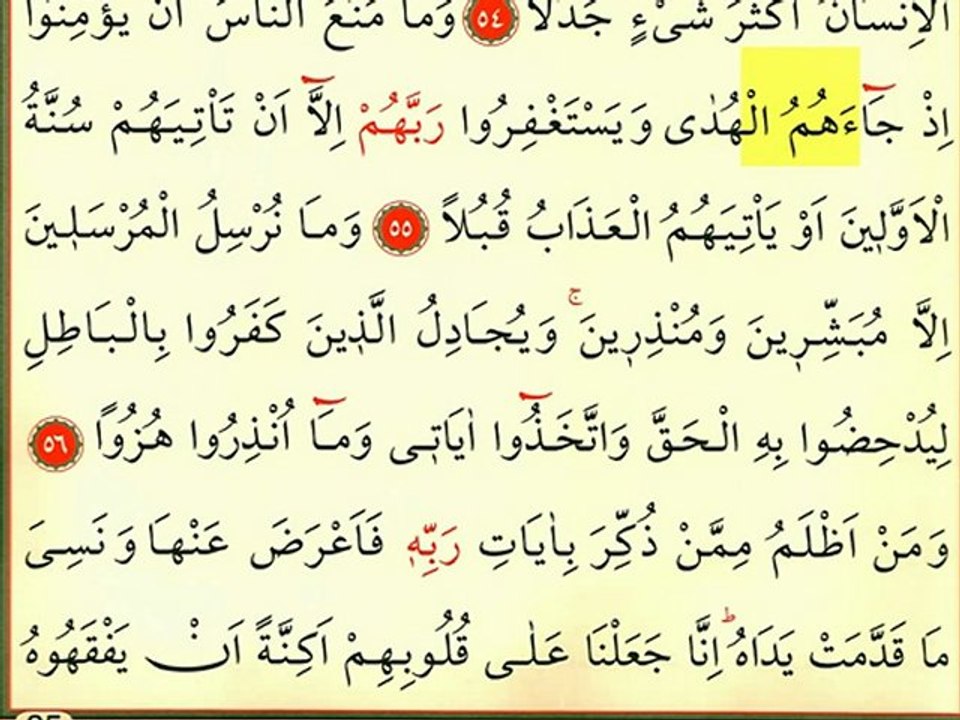 الْاِنْسَانُ اَكْثَرَ شَیْءٍ جَدَلًا ﴿٥٤﴾ وَمَا مَنَعَ النَّاسَ اَنْ يُؤْمِنُوا
اِذْ جَٓاءَهُمُ الْهُدٰى وَيَسْتَغْفِرُوا رَبَّهُمْ اِلَّٓا اَنْ تَأْتِيَهُمْ سُنَّةُ
الْاَوَّلٖينَ اَوْ يَأْتِيَهُمُ الْعَذَابُ قُبُلًا ﴿٥٥﴾ وَمَا نُرْسِلُ الْمُرْسَلٖينَ
اِلَّا مُبَشِّرٖينَ وَمُنْذِرٖينَ ۚ وَيُجَادِلُ الَّذٖينَ كَفَرُوا بِالْبَاطِلِ
لِيُدْحِضُوا بِهِ الْحَقَّ وَاتَّخَذُٓوا اٰيَاتٖى وَمَٓا اُنْذِرُوا هُزُوًا ﴿٥٦﴾
وَمَنْ اَظْلَمُ مِمَّنْ ذُكِّرَ بِاٰيَاتِ رَبِّهٖ فَاَعْرَضَ عَنْهَا وَنَسِیَ
مَا قَدَّمَتْ يَدَاهُ ؕ اِنَّا جَعَلْنَا عَلٰى قُلُوبِهِمْ اَكِنَّةً اَنْ يَفْقَهُوهُ